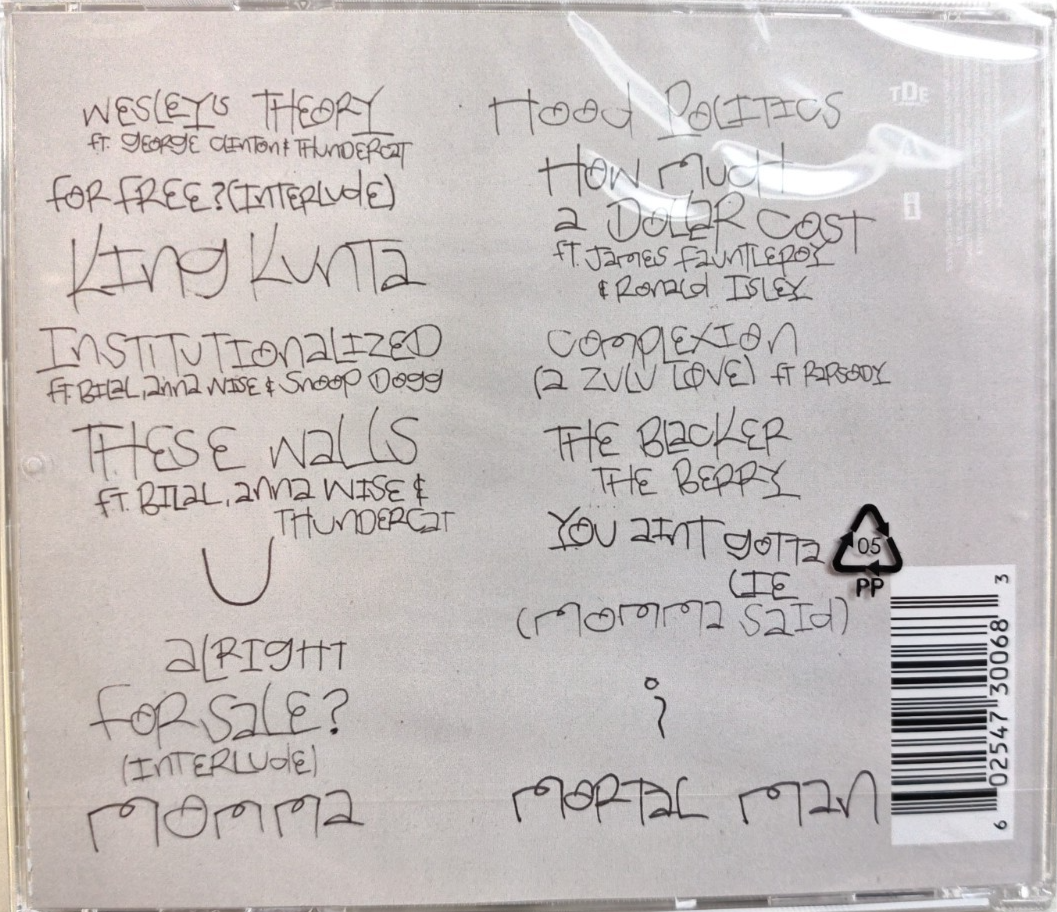 WESLEY'S THEORY
ft. GEORGE CLINTON & THUNDERCAT
FOR FREE? (INTERLUDE)
KING KUNTA
INSTITUTIONALIZED
ft. BILAL, ANNA WISE & SNOOP DOGG
THESE WALLS
ft. BILAL, ANNA WISE &
THUNDERCAT
U
ALRIGHT
FOR SALE?
(INTERLUDE)
MOMMA
HOOD POLITICS
HOW MUCH
A DOLLAR COST
ft. JAMES FAUNTLEROY
& RONALD ISLEY
COMPLEXION
(A ZULU LOVE) ft RAPSODY
THE BLACKER
THE BERRY
YOU AINT GOTTA
LIE
(MOMMA SAID)
i
MORTAL MAN
TDE
05
PP
6 02547 30068 3